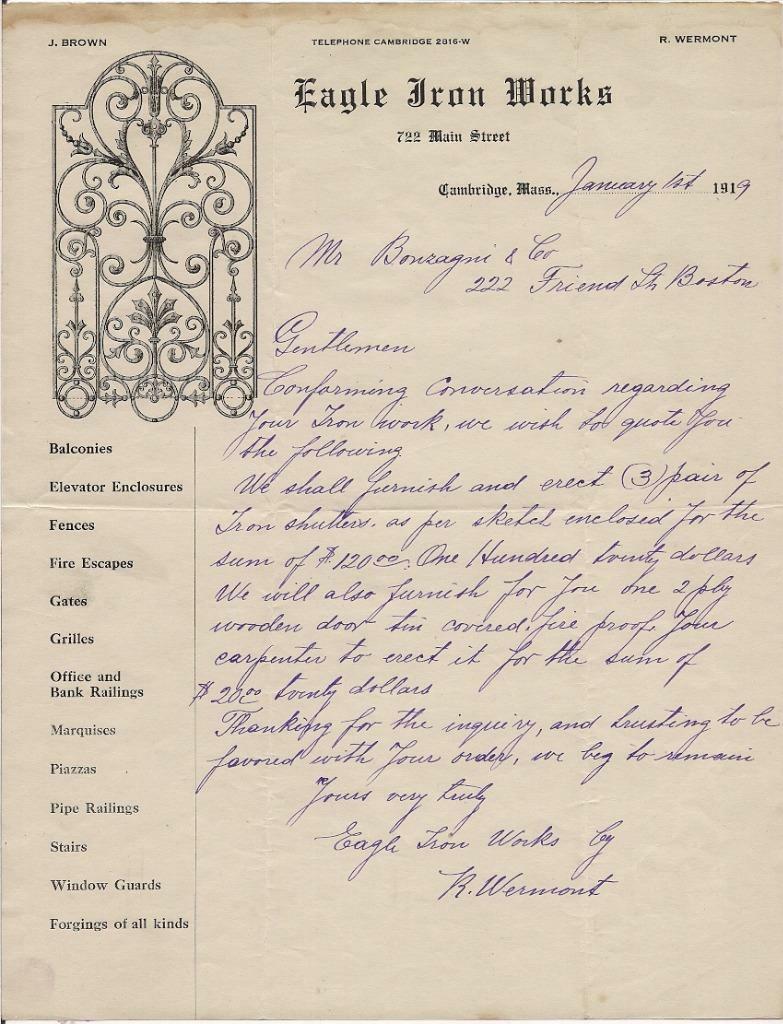 J. BROWN
TELEPHONE CAMBRIDGE 2816-W
R. WERMONT
Eagle Iron Works
722 Main Street
Cambridge, Mass., January 1st 1919
Mr Bonzagni & Co
222 Friend St Boston
Gentlemen
Conforming Conversation regarding
Your Iron work, we wish to quote You
the following
We shall furnish and erect (3) pair of
Iron shutters. as per sketch enclosed for the
sum of $120.00. One Hundred twenty dollars
We will also furnish for You one 2 ply
wooden door tin covered, fire proof, Your
carpenter to erect it for the sum of
$20.00 twenty dollars
Thanking for the inquiry, and trusting to be
favored with Your order, we beg to remain
Yours very truly
Eagle Iron Works by
R. Wermont
Balconies
Elevator Enclosures
Fences
Fire Escapes
Gates
Grilles
Office and
Bank Railings
Marquises
Piazzas
Pipe Railings
Stairs
Window Guards
Forgings of all kinds